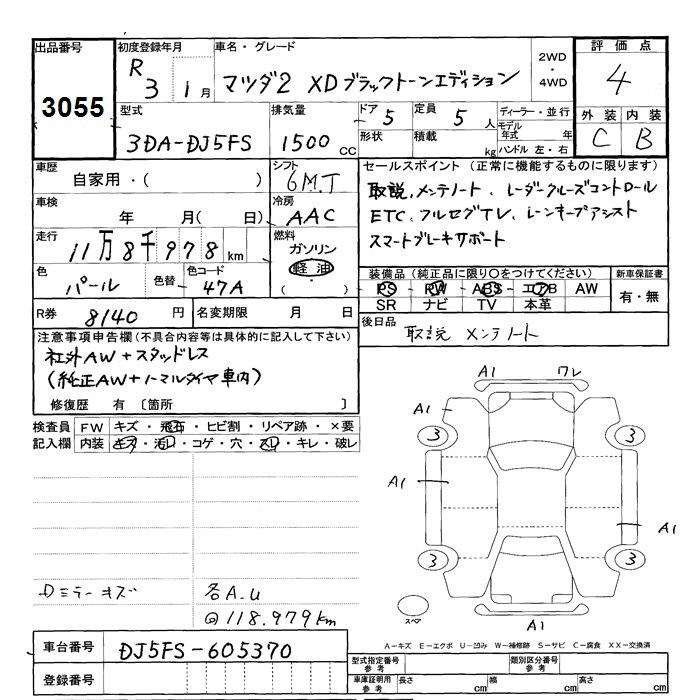 出品番号 初度登録年月 車名・グレード 2WD・4WD 評価点
3055 R3 1月 マツダ2 XDブラックトーンエディション 4
型式 排気量 ドア 5 定員 5人 ディーラー・並行 外装 内装
3DA-DJ5FS 1500CC 形状 積載 kg モデル年式 年 C B
ハンドル 左・右
車歴 シフト セールスポイント(正常に機能するものに限ります)
自家用・( ) 6MT 取説、メンテノート、レーダークルーズコントロール
車検 冷房 ETC、フルセグTV、レーンキープアシスト
年 月( 日) AAC スマートブレーキサポート
走行 燃料
11万8千978km ガソリン
軽油
色 色替 色コード 装備品(純正品に限り○をつけてください) 新車保証書
パール 47A PS・PW・ABS・エアB AW 有・無
SR ナビ TV 本革
R券 8140円 名変期限 月 日 後日品
取説 メンテノート
注意事項申告欄(不具合内容等は具体的に記入して下さい)
社外AW+スタッドレス
(純正AW+ノーマルタイヤ車内)
修復歴 有〔箇所 〕
検査員 FW キズ・飛石・ヒビ割・リペア跡・×要
記入欄 内装 キズ・汚レ・コゲ・穴・スレ・キレ・破レ
A1 ワレ
A1
3 3
A1
A1
3 3
スペア
A1
Dミラーキズ 各A.U
@118.979km
A-キズ E-エクボ U-凹み W-補修跡 S-サビ C-腐食 XX-交換済
車台番号 DJ5FS-605370
登録番号
型式指定番号 参考 類別区分番号 参考
車庫証明用 参考 長さ cm 幅 cm 高さ cm